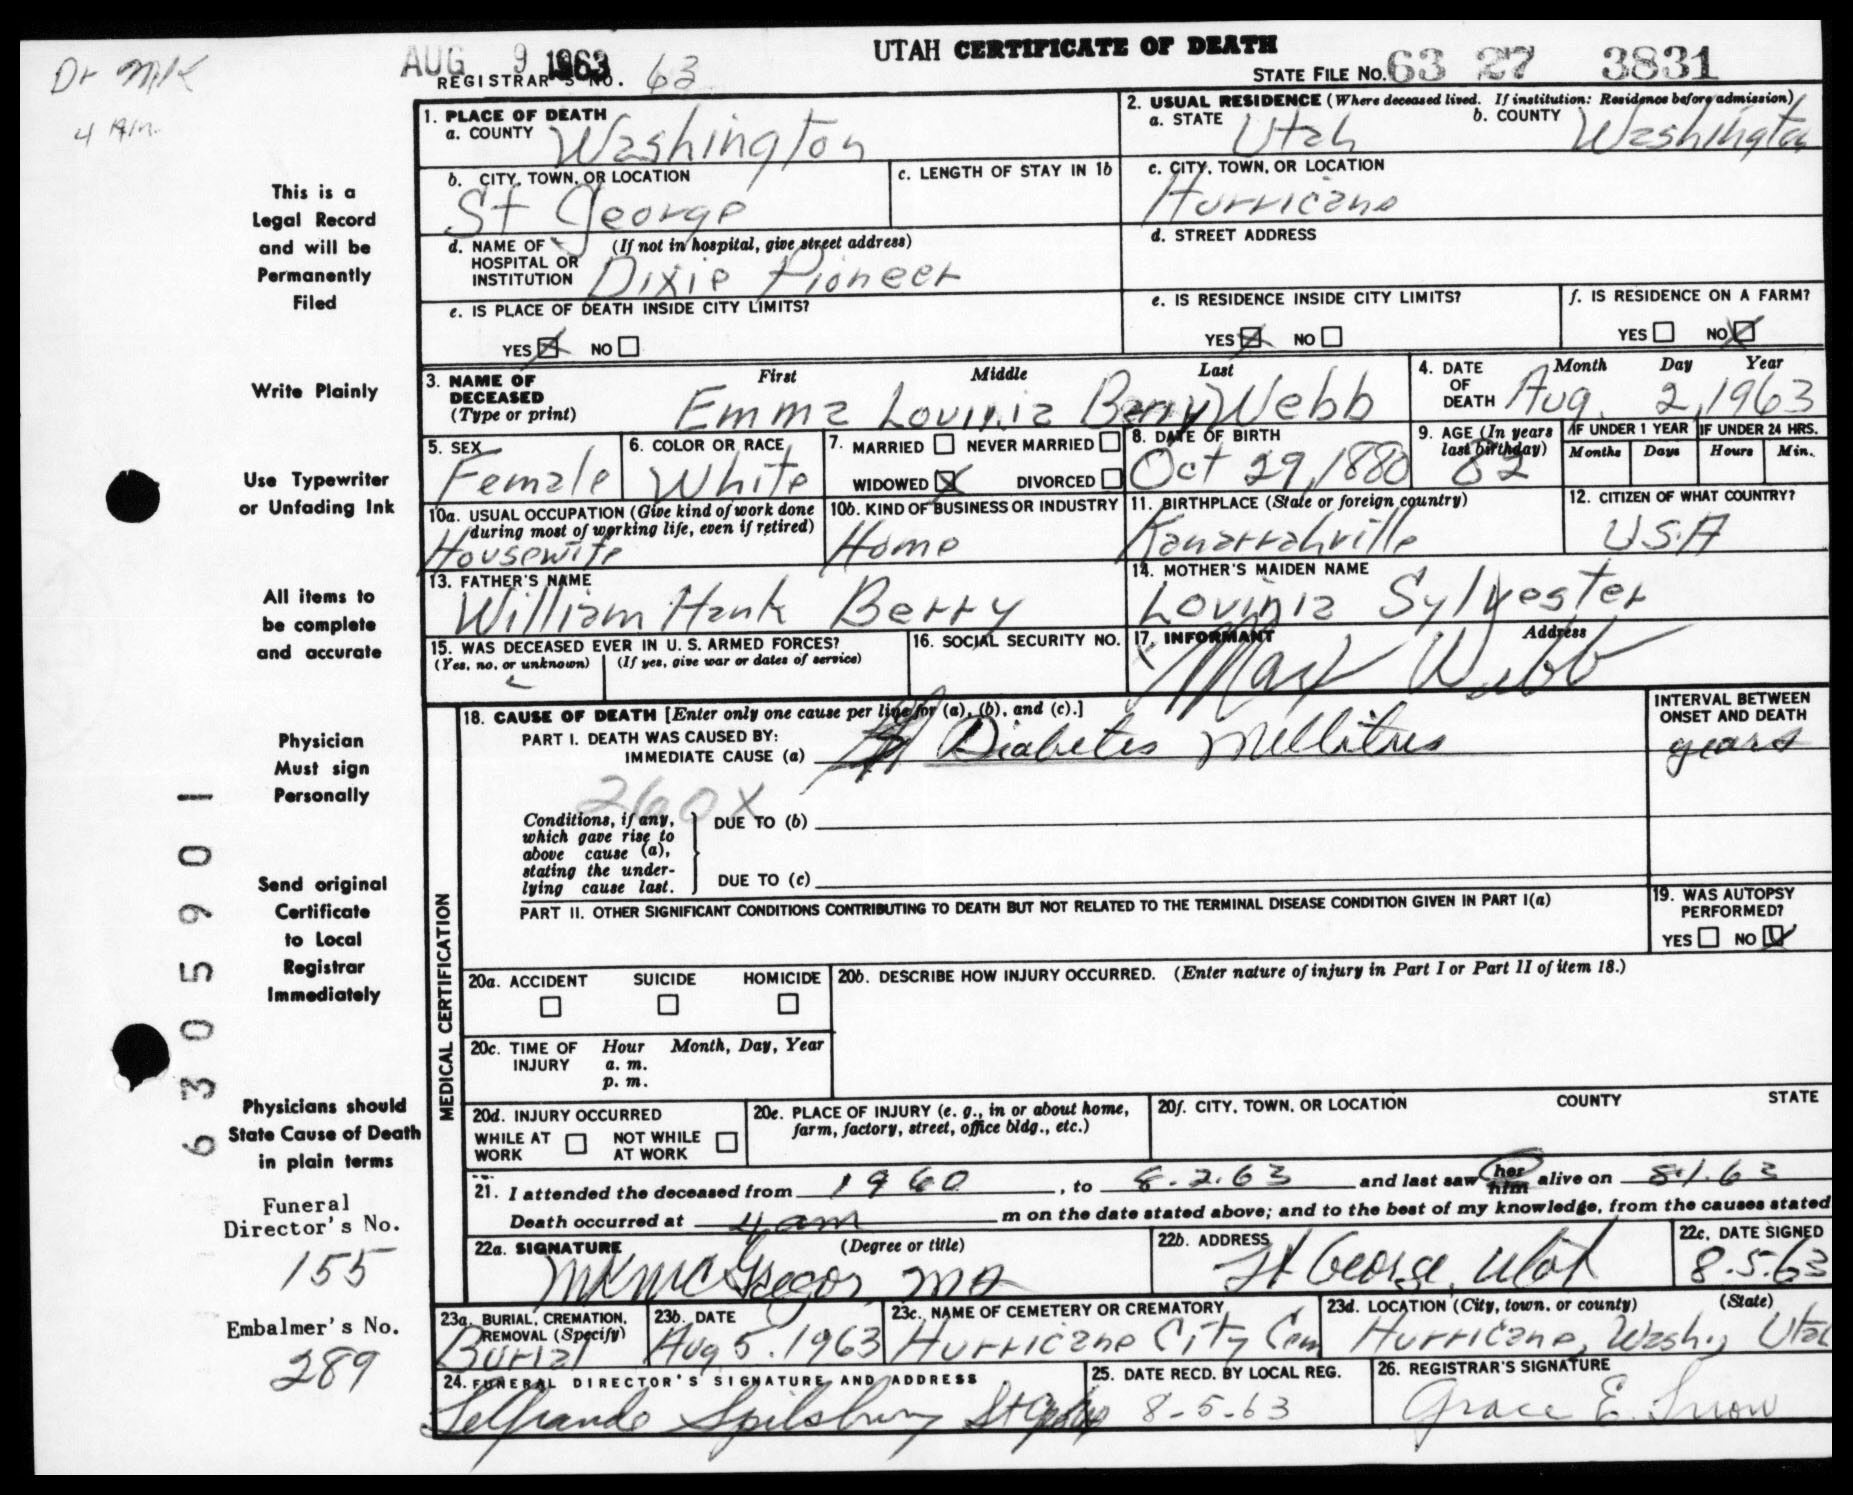 Dr MK
4 AM.
AUG 9 1963
UTAH CERTIFICATE OF DEATH
REGISTRAR'S NO. 63
STATE FILE NO. 63 27 3831
This is a
Legal Record
and will be
Permanently
Filed
Write Plainly
Use Typewriter
or Unfading Ink
All items to
be complete
and accurate
Physician
Must sign
Personally
Send original
Certificate
to Local
Registrar
Immediately
Physicians should
State Cause of Death
in plain terms
Funeral
Director's No.
155
Embalmer's No.
289
6305901
1. PLACE OF DEATH
a. COUNTY Washington
2. USUAL RESIDENCE (Where deceased lived. If institution: Residence before admission)
a. STATE Utah b. COUNTY Washington
b. CITY, TOWN, OR LOCATION St George
c. LENGTH OF STAY IN 1b
c. CITY, TOWN, OR LOCATION Hurricane
d. NAME OF HOSPITAL OR INSTITUTION (If not in hospital, give street address) Dixie Pioneer
d. STREET ADDRESS
e. IS PLACE OF DEATH INSIDE CITY LIMITS?
YES NO
e. IS RESIDENCE INSIDE CITY LIMITS?
YES NO
f. IS RESIDENCE ON A FARM?
YES NO
3. NAME OF DECEASED (Type or print) First Middle Last
Emma Lovinia Berry Webb
4. DATE OF DEATH Month Day Year
Aug. 2, 1963
5. SEX Female
6. COLOR OR RACE White
7. MARRIED NEVER MARRIED
WIDOWED DIVORCED
8. DATE OF BIRTH Oct 29, 1880
9. AGE (In years last birthday) 82
IF UNDER 1 YEAR Months Days
IF UNDER 24 HRS. Hours Min.
10a. USUAL OCCUPATION (Give kind of work done during most of working life, even if retired)
Housewife
10b. KIND OF BUSINESS OR INDUSTRY
Home
11. BIRTHPLACE (State or foreign country)
Kanarrahville
12. CITIZEN OF WHAT COUNTRY?
U.S.A
13. FATHER'S NAME
William Hank Berry
14. MOTHER'S MAIDEN NAME
Lovinia Sylvester
15. WAS DECEASED EVER IN U. S. ARMED FORCES?
(Yes, no, or unknown) (If yes, give war or dates of service)
16. SOCIAL SECURITY NO.
17. INFORMANT Address
Max Webb
MEDICAL CERTIFICATION
18. CAUSE OF DEATH [Enter only one cause per line for (a), (b), and (c).]
PART I. DEATH WAS CAUSED BY:
IMMEDIATE CAUSE (a) Diabetes Mellitus
INTERVAL BETWEEN ONSET AND DEATH
years
260X
Conditions, if any, which gave rise to above cause (a), stating the underlying cause last.
DUE TO (b)
DUE TO (c)
PART II. OTHER SIGNIFICANT CONDITIONS CONTRIBUTING TO DEATH BUT NOT RELATED TO THE TERMINAL DISEASE CONDITION GIVEN IN PART I(a)
19. WAS AUTOPSY PERFORMED?
YES NO
20a. ACCIDENT SUICIDE HOMICIDE
20b. DESCRIBE HOW INJURY OCCURRED. (Enter nature of injury in Part I or Part II of item 18.)
20c. TIME OF INJURY Hour Month, Day, Year
a. m.
p. m.
20d. INJURY OCCURRED
WHILE AT WORK NOT WHILE AT WORK
20e. PLACE OF INJURY (e. g., in or about home, farm, factory, street, office bldg., etc.)
20f. CITY, TOWN, OR LOCATION COUNTY STATE
21. I attended the deceased from 1960, to 8.2.63 and last saw her him alive on 8.1.63
Death occurred at 4 am m on the date stated above; and to the best of my knowledge, from the causes stated
22a. SIGNATURE (Degree or title)
MK McGregor MD
22b. ADDRESS
St George, Utah
22c. DATE SIGNED
8.5.63
23a. BURIAL, CREMATION, REMOVAL (Specify)
Burial
23b. DATE
Aug 5, 1963
23c. NAME OF CEMETERY OR CREMATORY
Hurricane City Cem
23d. LOCATION (City, town, or county) (State)
Hurricane, Wash, Utah
24. FUNERAL DIRECTOR'S SIGNATURE AND ADDRESS
Spilsbury St George
25. DATE RECD. BY LOCAL REG.
8-5-63
26. REGISTRAR'S SIGNATURE
Grace E. Snow